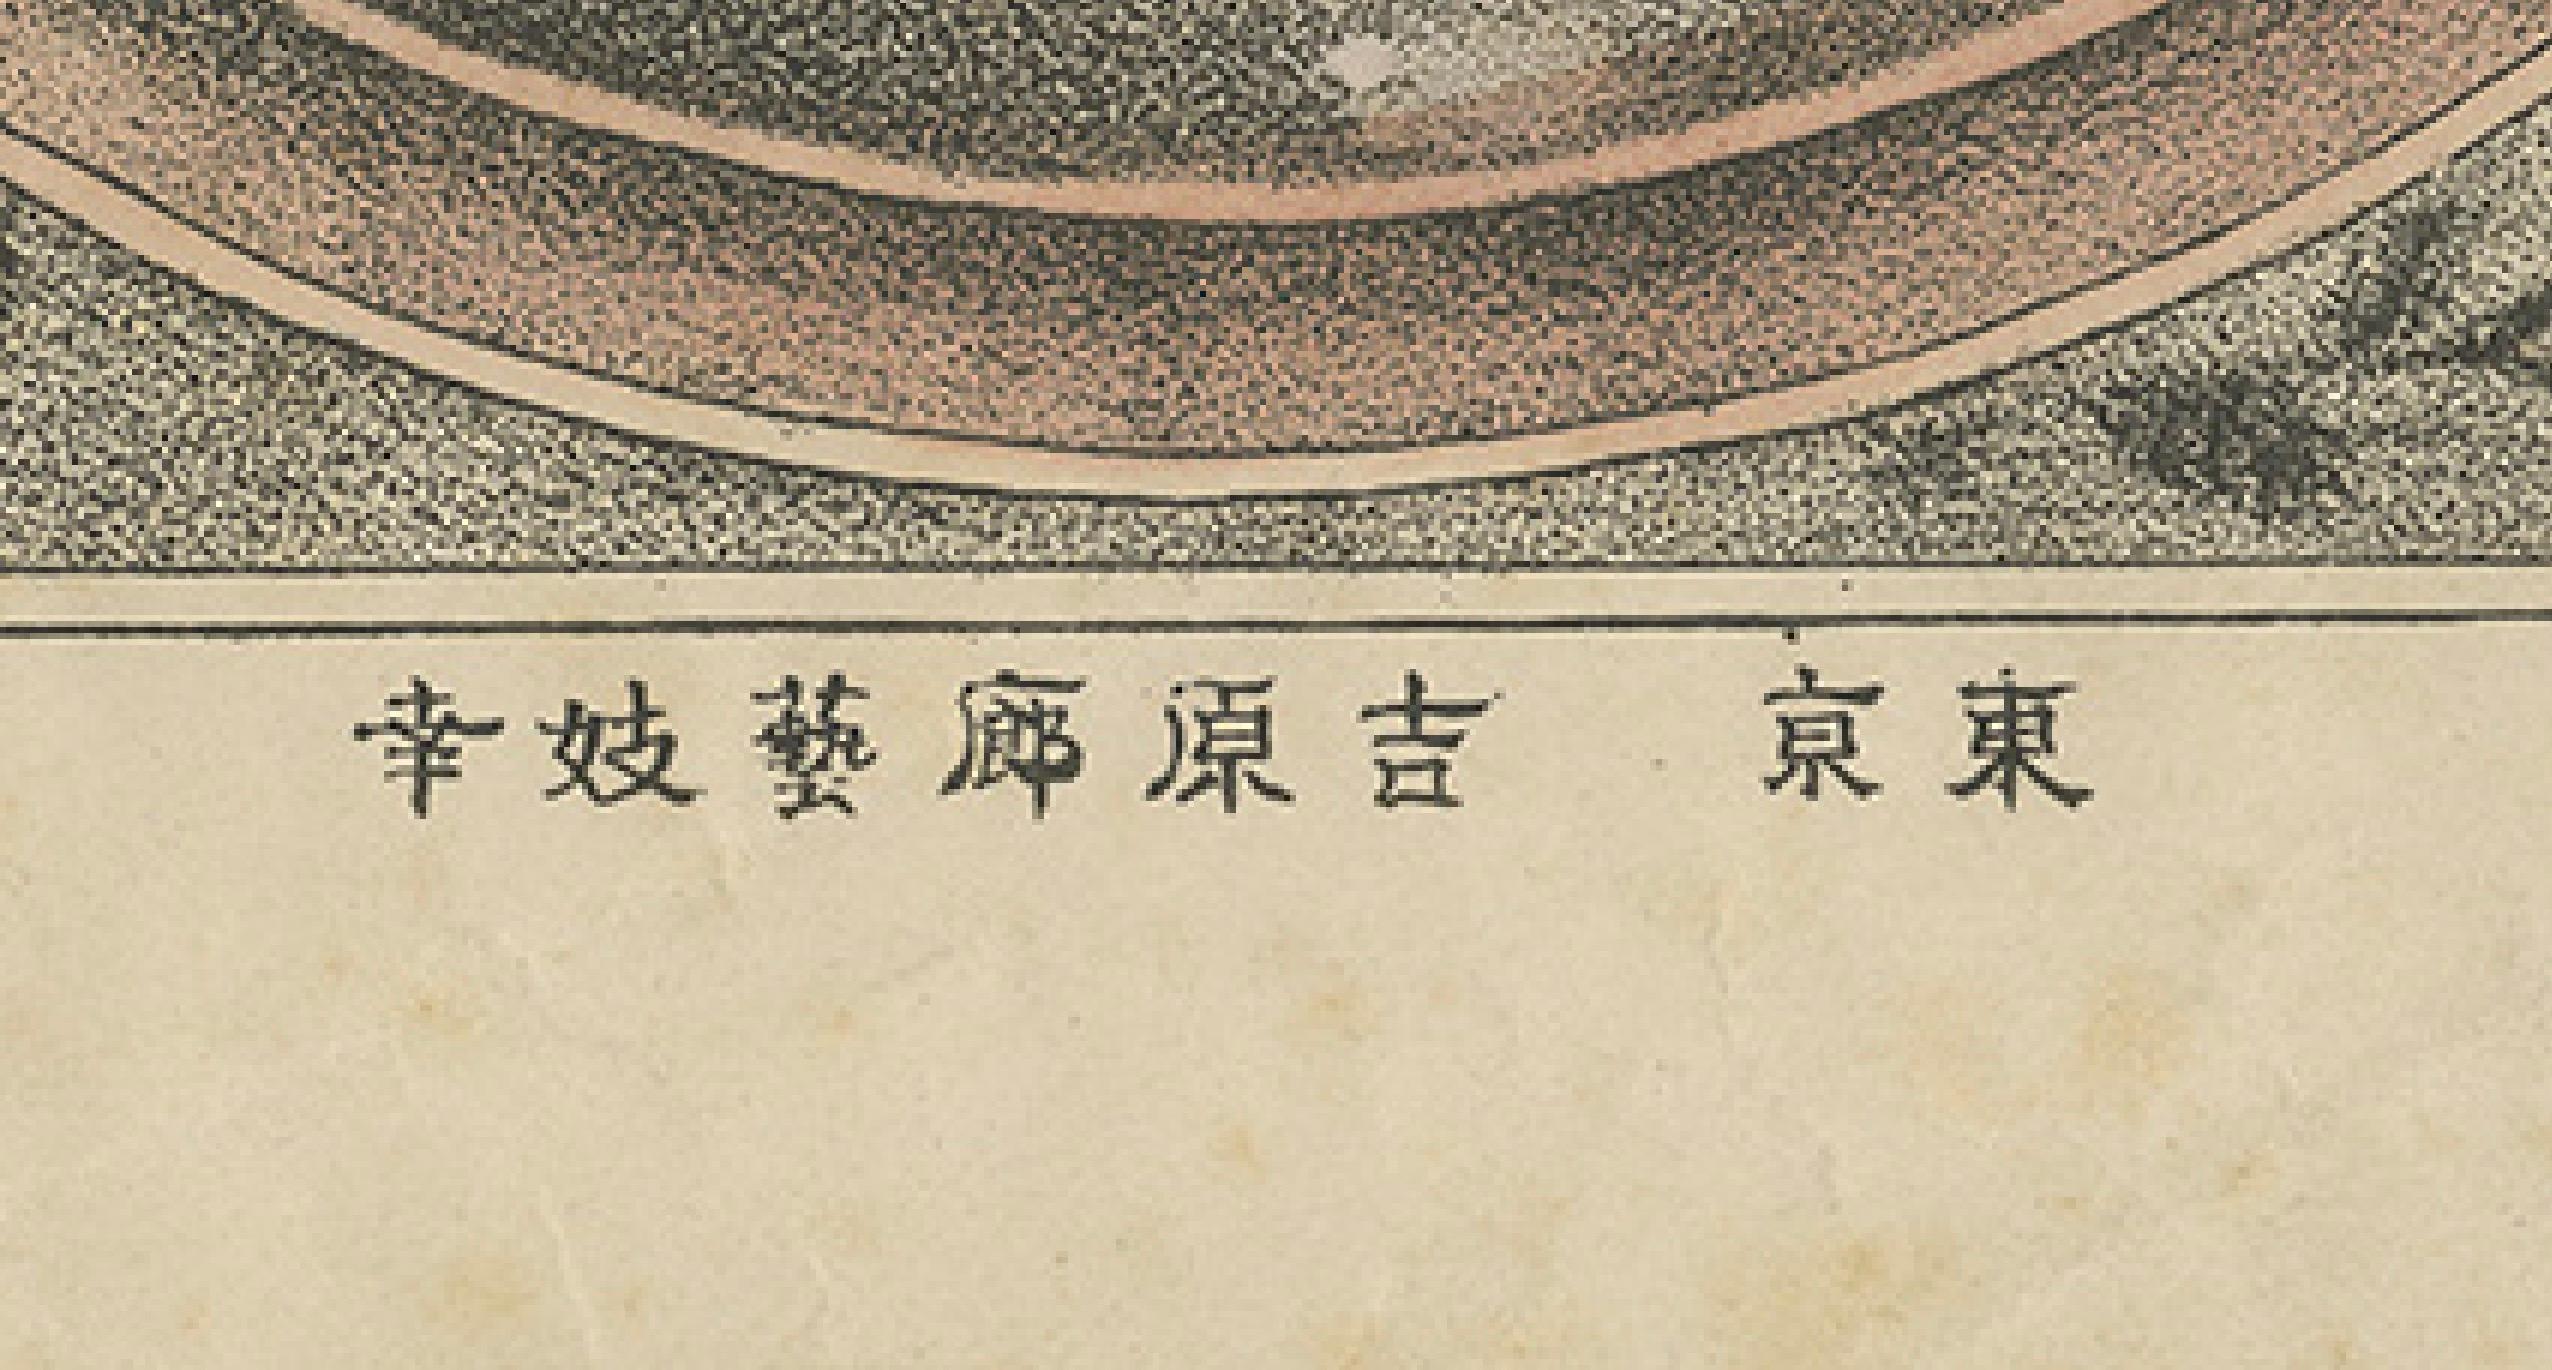 東京 吉原廓藝妓幸